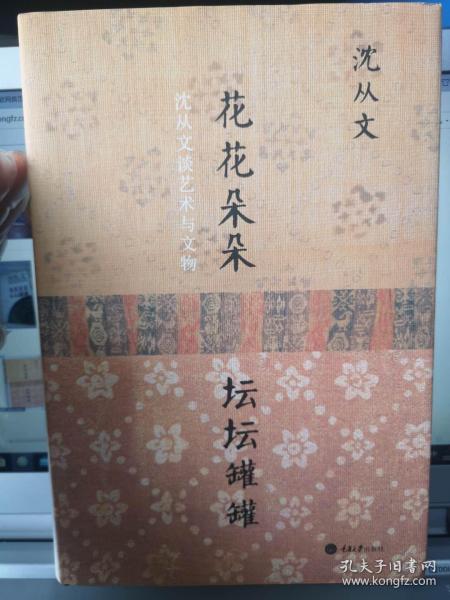 沈从文
花花朵朵
坛坛罐罐
沈从文谈艺术与文物
重庆大学出版社
孔夫子旧书网